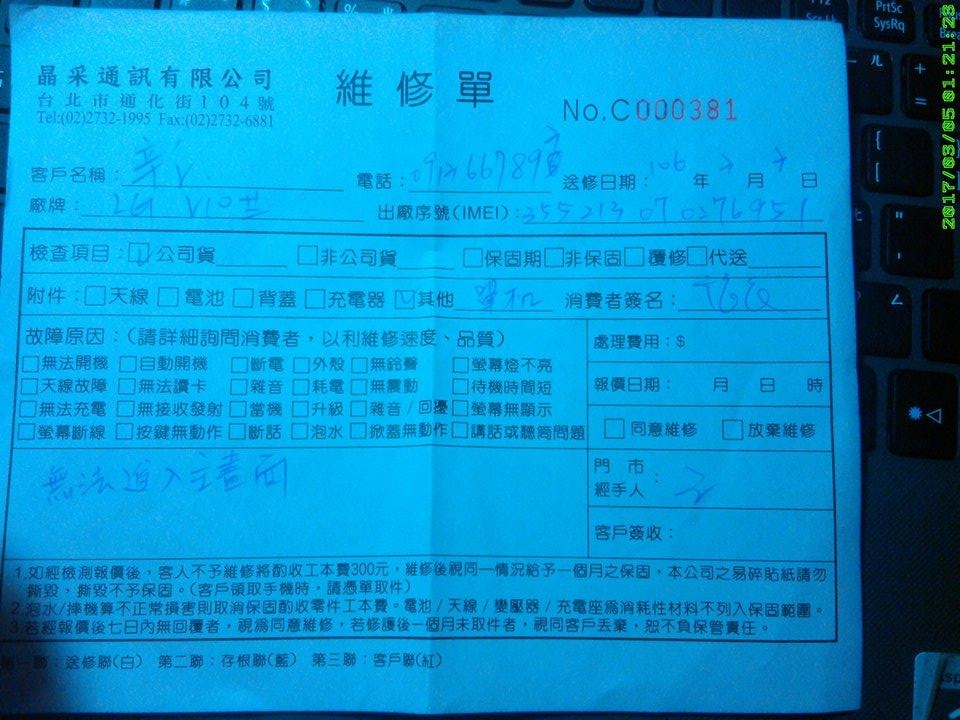 晶采通訊有限公司
台北市通化街104號
Tel:(02)2732-1995 Fax:(02)2732-6881
維修單
No.C000381
客戶名稱： 電話： 送修日期：106 年 月 日
廠牌：LG V10 出廠序號(IMEI)：355213 07 0376951
檢查項目：公司貨 非公司貨 保固期 非保固 覆修 代送
附件：天線 電池 背蓋 充電器 其他 單机 消費者簽名：
故障原因：(請詳細詢問消費者，以利維修速度、品質)
無法開機 自動開機 斷電 外殼 無鈴聲 螢幕燈不亮
天線故障 無法讀卡 雜音 耗電 無震動 待機時間短
無法充電 無接收發射 當機 升級 雜音/回擾 螢幕無顯示
螢幕斷線 按鍵無動作 斷話 泡水 掀蓋無動作 講話或聽筒問題
無法進入主畫面
處理費用：$
報價日期： 月 日 時
同意維修 放棄維修
門市
經手人
客戶簽收：
1.如經檢測報價後，客人不予維修將酌收工本費300元，維修後視同一情況給予一個月之保固。本公司之易碎貼紙請勿
撕毀，撕毀不予保固。(客戶領取手機時，請憑單取件)
2.泡水/摔機算不正常損害則取消保固酌收零件工本費。電池/天線/變壓器/充電座為消耗性材料不列入保固範圍。
3.若經報價後七日內無回覆者，視為同意維修，若修護後一個月未取件者，視同客戶丟棄，恕不負保管責任。
第一聯：送修聯(白) 第二聯：存根聯(藍) 第三聯：客戶聯(紅)
PrtSc
SysRq
2017/03/05 01:21:28